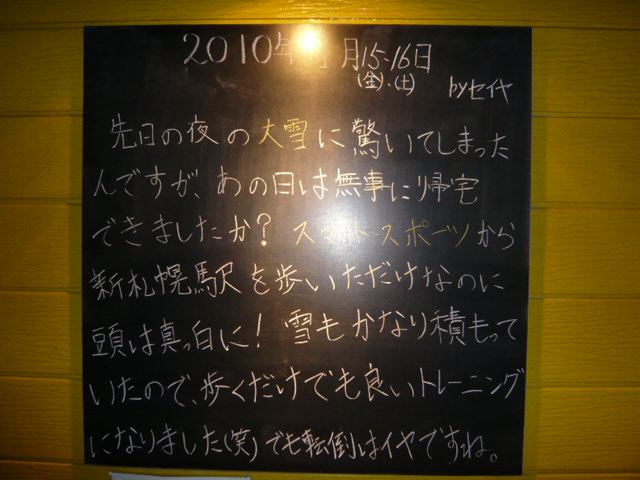 2010年1月15-16日
(金)・(土)
byセイヤ
先日の夜の大雪に驚いてしまった
んですが、あの日は無事に帰宅
できましたか? スマートスポーツから
新札幌駅を歩いただけなのに
頭は真っ白に! 雪もかなり積もって
いたので、歩くだけでも良いトレーニング
になりました(笑)でも転倒はイヤですね。